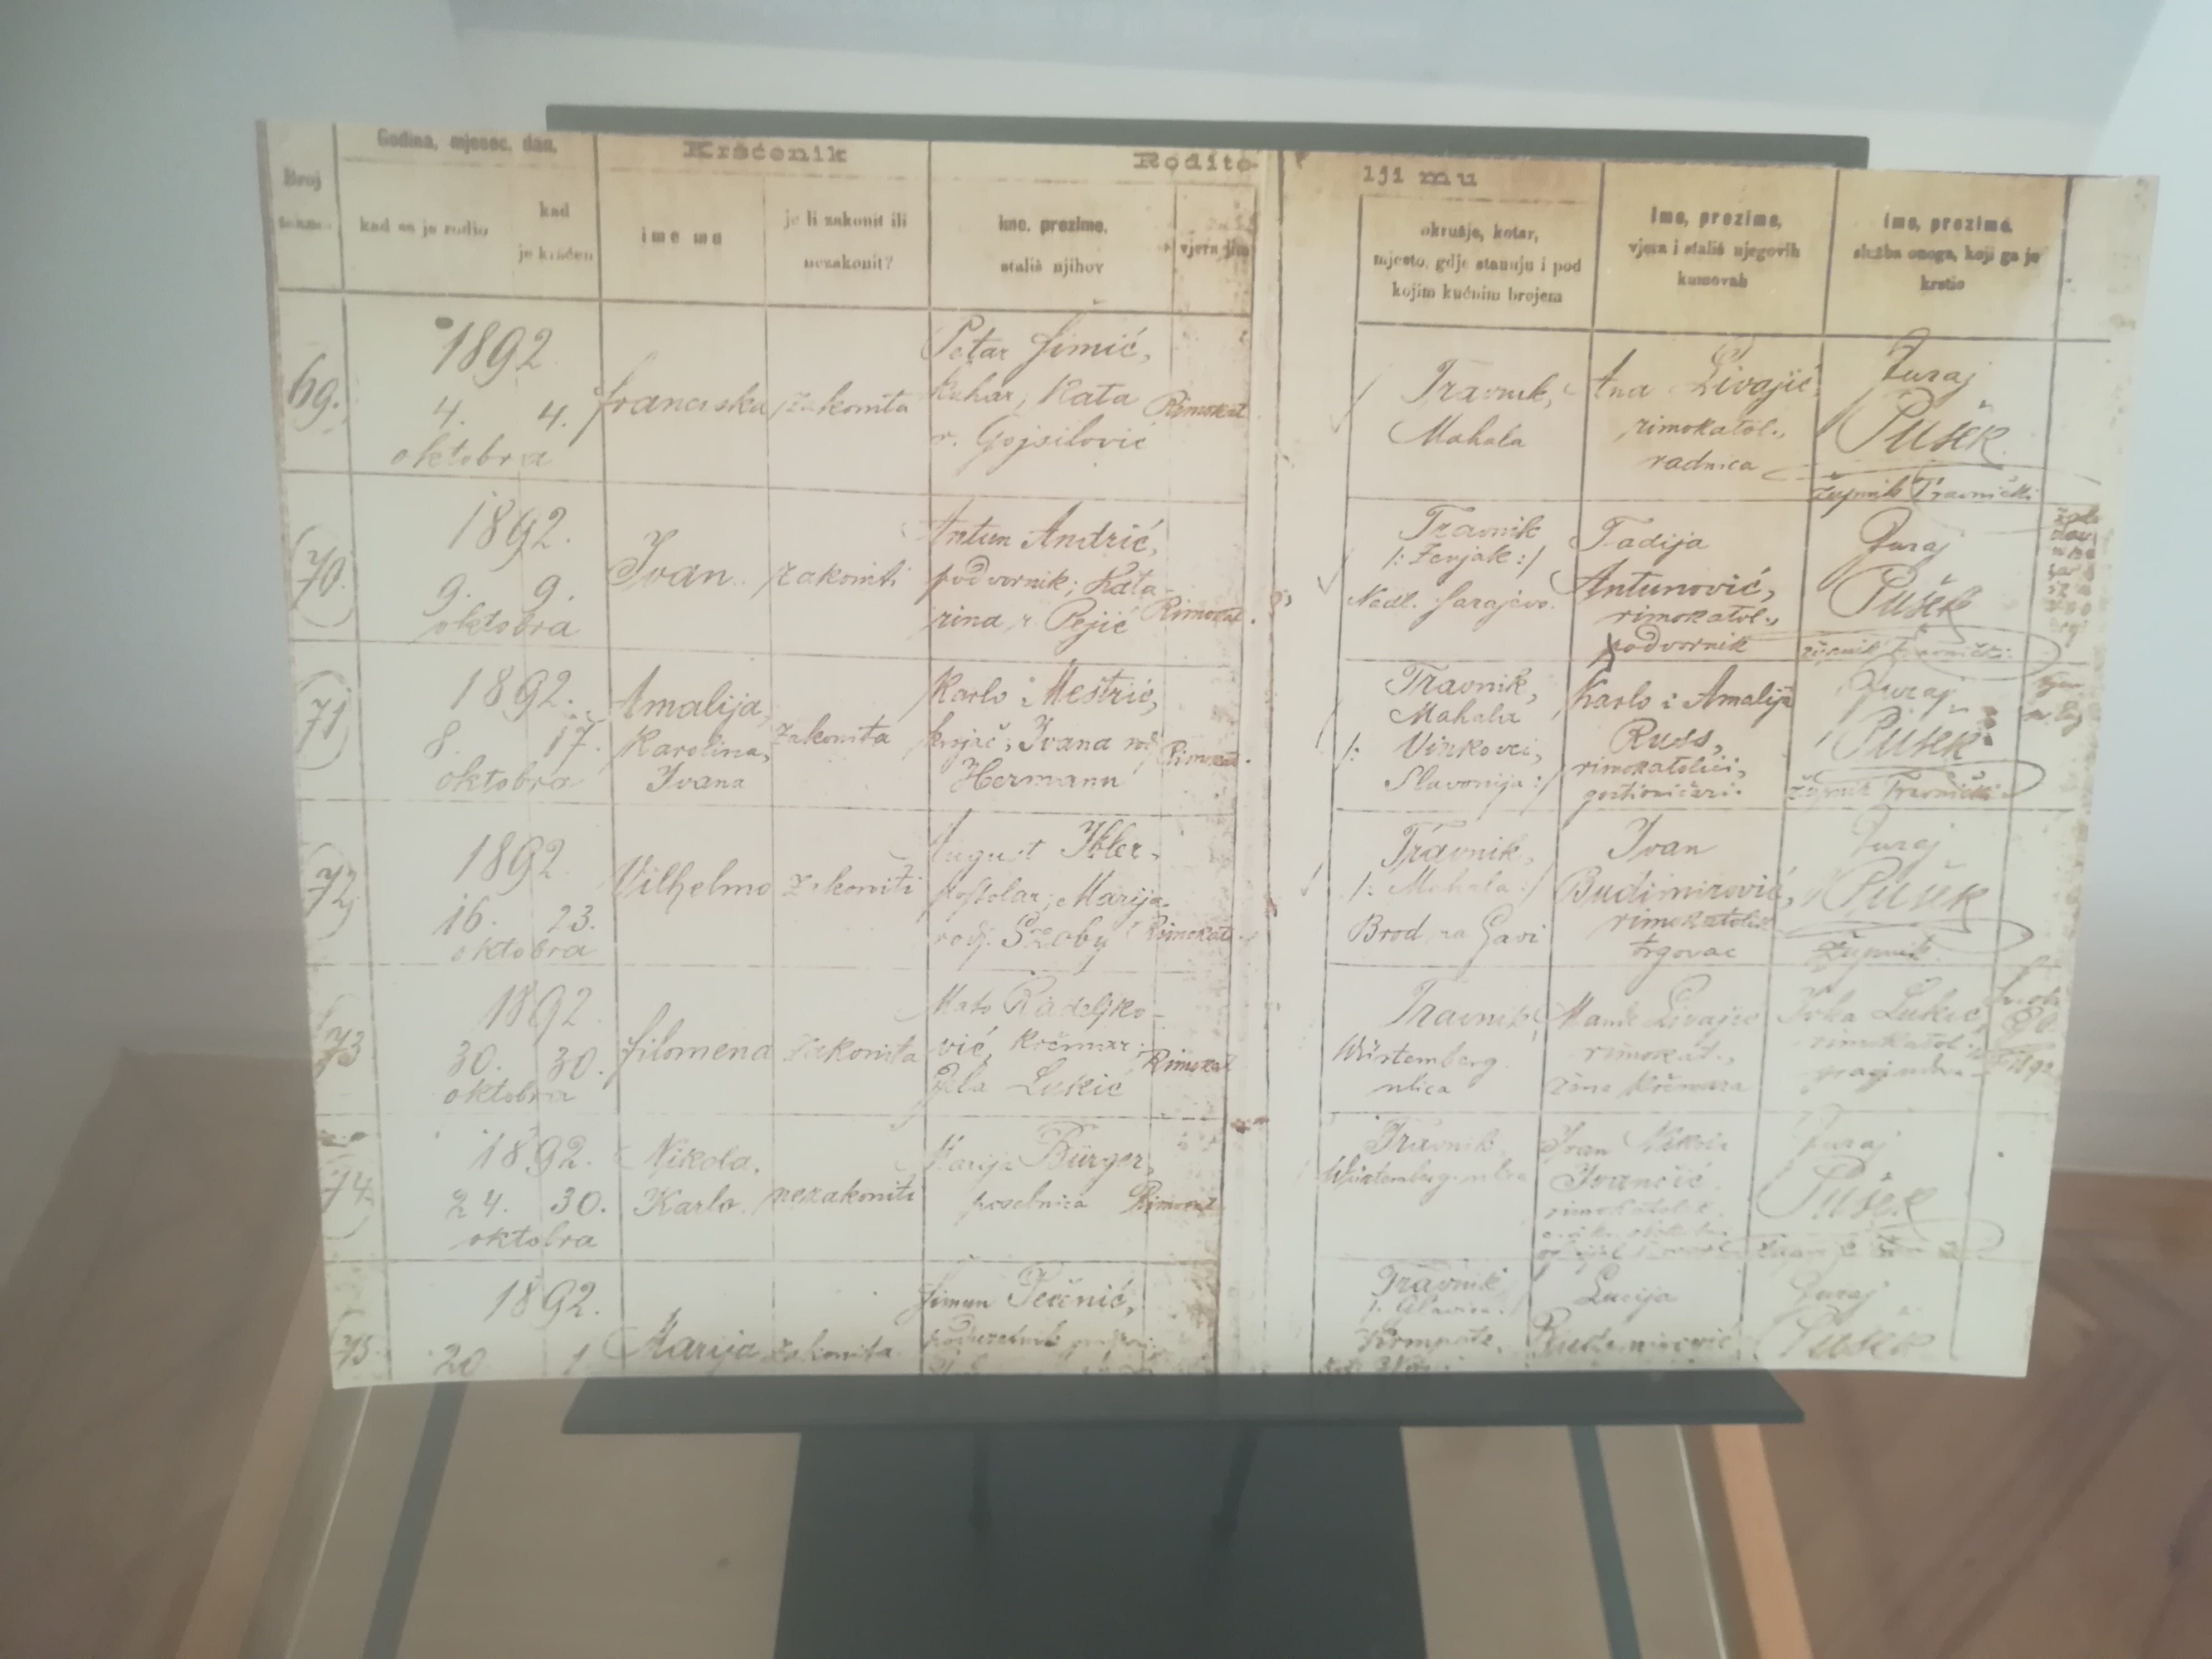 Godina, mjesec, dan,
Kršćenik
Rodite-
lji mu
Broj
kad se je rodio
kad
je kršten
ime mu
je li zakonit ili
nezakonit?
ime, prezime,
stališ njihov
vjera jim
okružje, kotar,
mjesto, gdje stanuju i pod
kojim kućnim brojem
ime, prezime,
vjera i stališ njegovih
kumovah
ime, prezime,
služba onoga, koji ga je
krstio
69.
1892
4. 4.
oktobra
Franciska
zakonita
Petar Simić,
kuhar; Kata
r. Gojsilović
Rimokat
Travnik,
Mahala
Ana Livajić,
rimokatol.,
radnica
Juraj
Pušek
župnik Travnički
70.
1892.
9. 9.
oktobra
Ivan
zakoniti
Antun Andrić,
podvornik; Kata-
rina r. Pejić
Rimokat.
Travnik
/: Zenjak :/
Nadl. Sarajevo.
Tadija
Antunović,
rimokatol.,
podvornik
Juraj
Pušek
župnik travnički
71
1892.
8. 17.
oktobra
Amalija,
Karolina,
Ivana
zakonita
Karlo Meštrić,
Ivana
Hermann
Rimokat.
Travnik,
Mahala
/: Vinkovci,
Slavonija :/
Karlo i Amalija
Russ,
rimokatolici,
gostioničari.
Juraj
Pušek
župnik Travnički
72
1892
16. 23.
oktobra
Vilhelmo
zakoniti
August Ibler,
postolar; Marija
rodj. Szaby
Rimokat.
Travnik,
/: Mahala :/
Brod na Savi
Ivan
Budimirović,
rimokatolik
trgovac
Juraj
Pušek
župnik
73
1892
30. 30.
oktobra
Filomena
zakonita
Mato Radeljko-
vić, krčmar;
Jela Lukić
Rimokat
Travnik,
Würtemberg.
ulica
Manda Livajić
rimokat.,
žena krčmara
Luka Lukić,
rimokatol.
74
1892.
24. 30.
oktobra
Nikola,
Karlo
nezakoniti
Marija Bürger,
Rimokat
Travnik
Würtemberg. ulica
Ivan Nikola
Ivančić
rimokatolik
Juraj
Pušek
75.
1892.
20 1
Marija
zakonita
Simun Pečnić,
Travnik
/: Glavica :/
Lucija
Budimirović
Juraj
Pušek